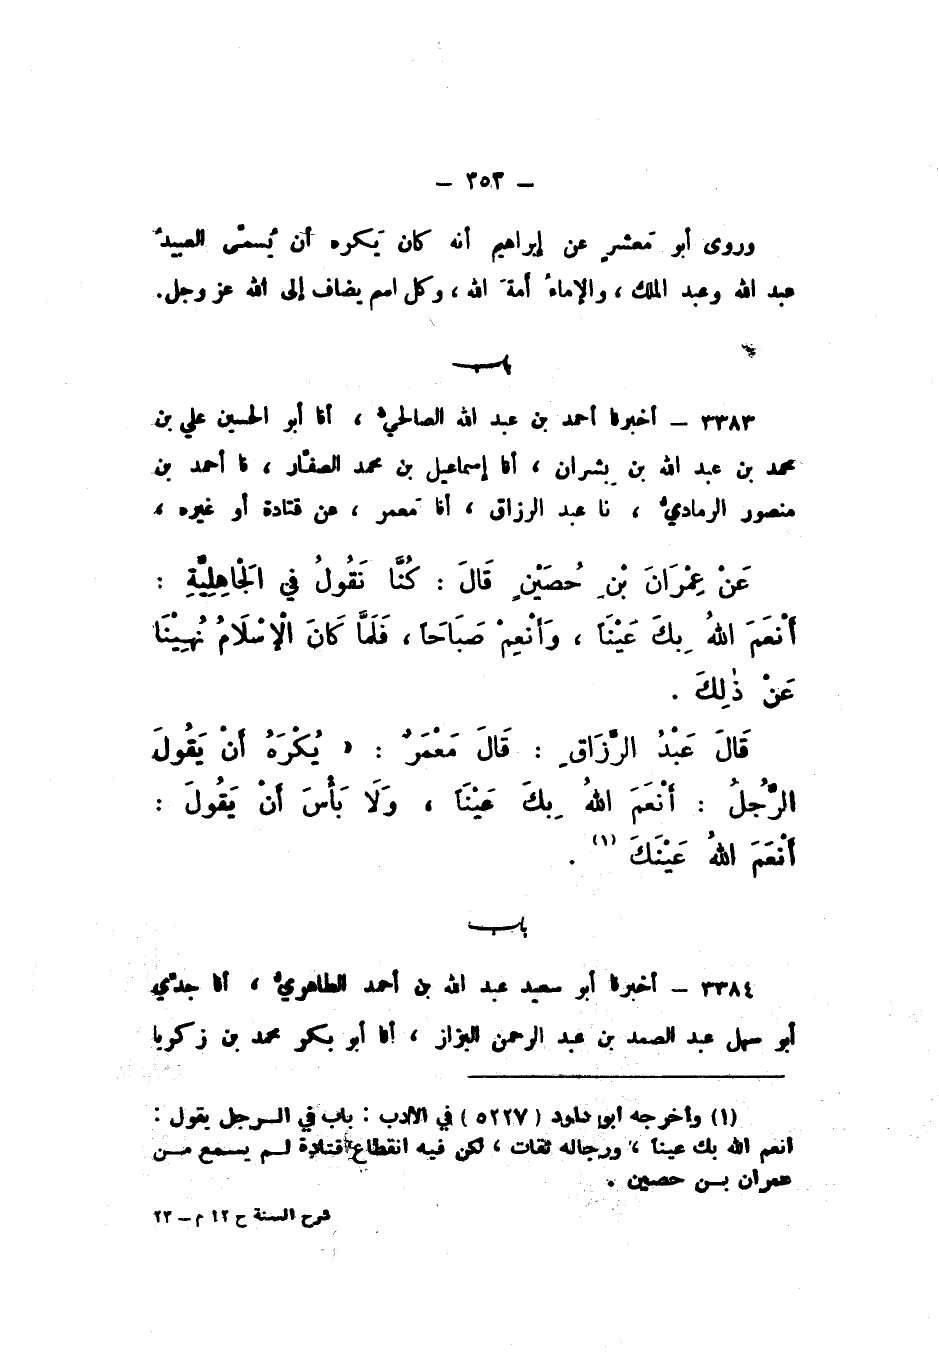 – ٣٥٣ –
وروى أبو مَعشرٍ عن إبراهيم أنه كان يَكره أن يُسمّى العبيدُ
عبد الله وعبد الملك ، والإماءُ أمةَ الله ، وكل اسم يضاف إلى الله عز وجل.
باب
٣٣٨٣ – أخبرنا أحمد بن عبد الله الصالحيُّ ، أنا أبو الحسين علي بن
محمد بن عبد الله بن بِشران ، أنا إسماعيل بن محمد الصفّار ، نا أحمد بن
منصور الرماديُّ ، نا عبد الرزاق ، أنا مَعمر ، عن قتادة أو غيره ،
عَنْ عِمْرَانَ بْنِ حُصَيْنٍ قَالَ : كُنَّا نَقُولُ فِي الجَاهِلِيَّةِ :
أَنْعَمَ اللهُ بِكَ عَيْنَاً ، وَأَنْعِمْ صَبَاحَاً ، فَلَمَّا كَانَ الْإِسْلَامُ نُهِيْنَا
عَنْ ذٰلِكَ .
قَالَ عَبْدُ الرَّزَاقِ : قَالَ مَعْمَرٌ : « يُكْرَهُ أَنْ يَقُولَ
الرَّجُلُ : أَنْعَمَ اللهُ بِكَ عَيْنَاً ، وَلَا بَأْسَ أَنْ يَقُولَ :
أَنْعَمَ اللهُ عَيْنَكَ (١) .
باب
٣٣٨٤ – أخبرنا أبو سعيد عبد الله بن أحمد الطاهريُّ ، أنا جدّي
أبو سهل عبد الصمد بن عبد الرحمن البزاز ، أنا أبو بكر محمد بن زكريا
(١) وأخرجه أبو داود ( ٥٢٢٧ ) في الأدب : باب في الرجل يقول :
أنعم الله بك عيناً ، ورجاله ثقات ، لكن فيه انقطاع قتادة لم يسمع من
عمران بن حصين .
شرح السنة ج ١٢ م – ٢٣